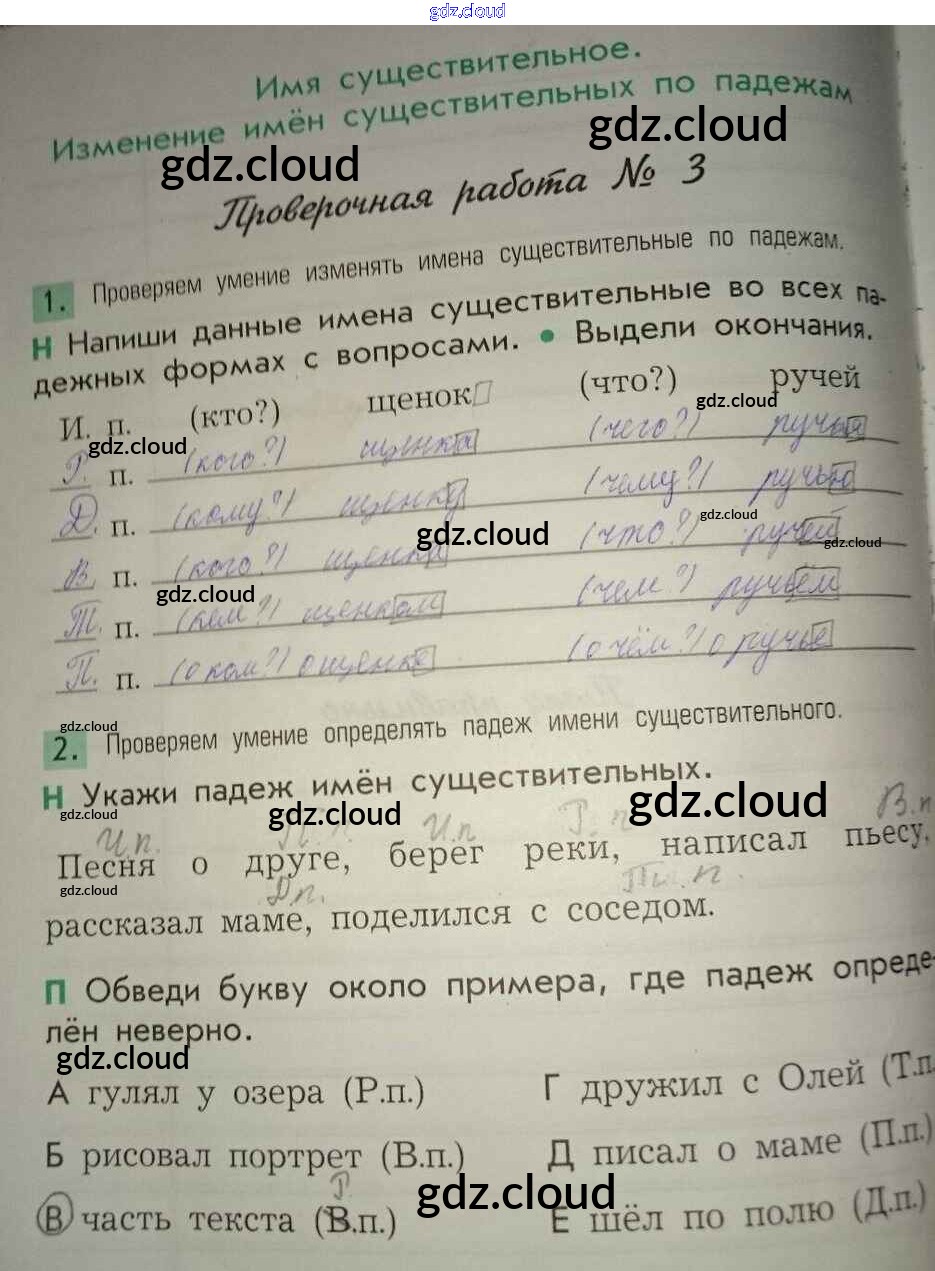 gdz.cloud
Имя существительное.
Изменение имён существительных по падежам
gdz.cloud gdz.cloud
Проверочная работа № 3
1. Проверяем умение изменять имена существительные по падежам.
Н Напиши данные имена существительные во всех па-
дежных формах с вопросами. • Выдели окончания.
И. п. (кто?) щенок (что?) ручей
gdz.cloud gdz.cloud
Р. п. (кого?) щенка (чего?) ручья
Д. п. (кому?) щенку (чему?) ручью
gdz.cloud gdz.cloud
В. п. (кого?) щенка (что?) ручей
gdz.cloud gdz.cloud
Т. п. (кем?) щенком (чем?) ручьем
П. п. (о ком?) о щенке (о чём?) о ручье
gdz.cloud
2. Проверяем умение определять падеж имени существительного.
Н Укажи падеж имён существительных.
gdz.cloud gdz.cloud gdz.cloud
И.п. П. п И.п Р. п В.п
Песня о друге, берег реки, написал пьесу,
gdz.cloud Дп. Тв. п.
рассказал маме, поделился с соседом.
П Обведи букву около примера, где падеж опреде-
лён неверно.
gdz.cloud
А гулял у озера (Р.п.) Г дружил с Олей (Т.п.
Б рисовал портрет (В.п.) Д писал о маме (П.п.)
Р. gdz.cloud
В часть текста (В.п.) Е шёл по полю (Д.п.)